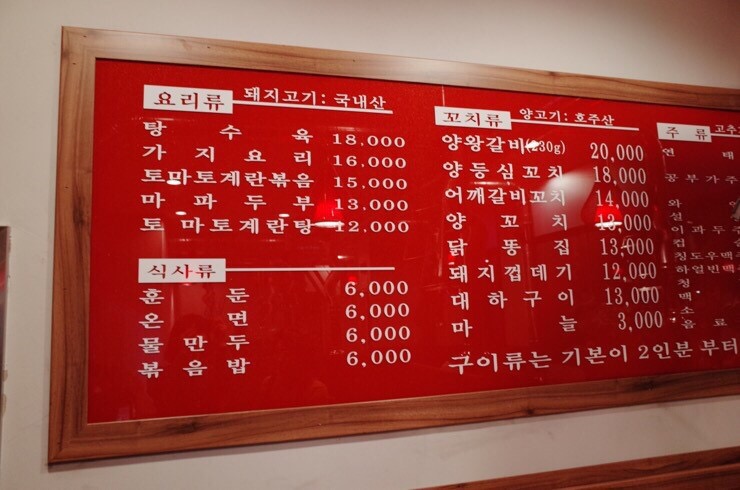 요리류 돼지고기: 국내산
탕수육 18,000
가지요리 16,000
토마토계란볶음 15,000
마파두부 13,000
토마토계란탕 12,000
식사류
훈둔 6,000
온면 6,000
물만두 6,000
볶음밥 6,000
꼬치류 양고기: 호주산
양왕갈비(230g) 20,000
양등심꼬치 18,000
어깨갈비꼬치 14,000
양꼬치 13,000
닭똥집 13,000
돼지껍데기 12,000
대하구이 13,000
마늘 3,000
구이류는 기본이 2인분 부터
주류 고추
연태
공부가주
와
설
이과두
컵술
칭도우맥
하얼빈맥
청
맥
소
음료